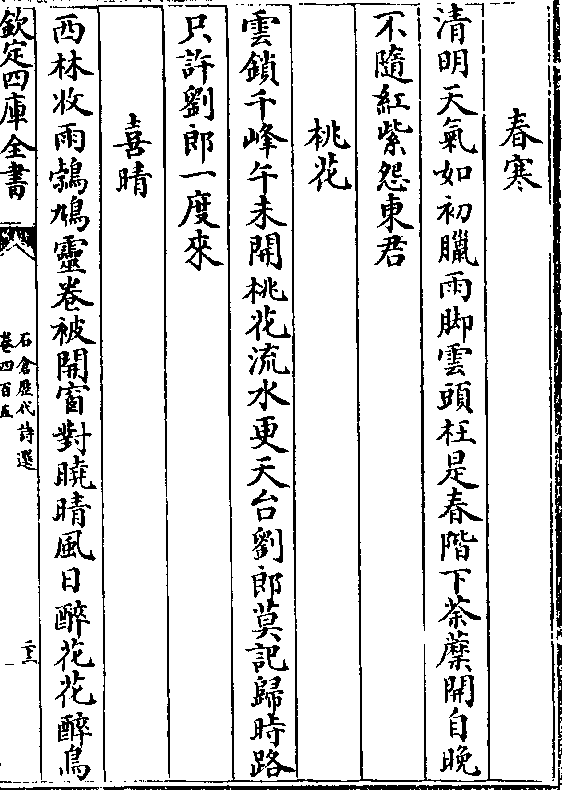 春寒
清明天氣如初臘雨脚雲頭枉是春階下荼䕷開自晚
不隨紅紫怨東君
桃花
雲鎖千峰午未開桃花流水更天台劉郎莫記歸時路
只許劉郎一度來
喜晴
西林收雨鵓鳩靈卷被開窗對曉晴風日醉花花醉鳥
欽定四庫全書
石倉歷代詩選
卷四百五